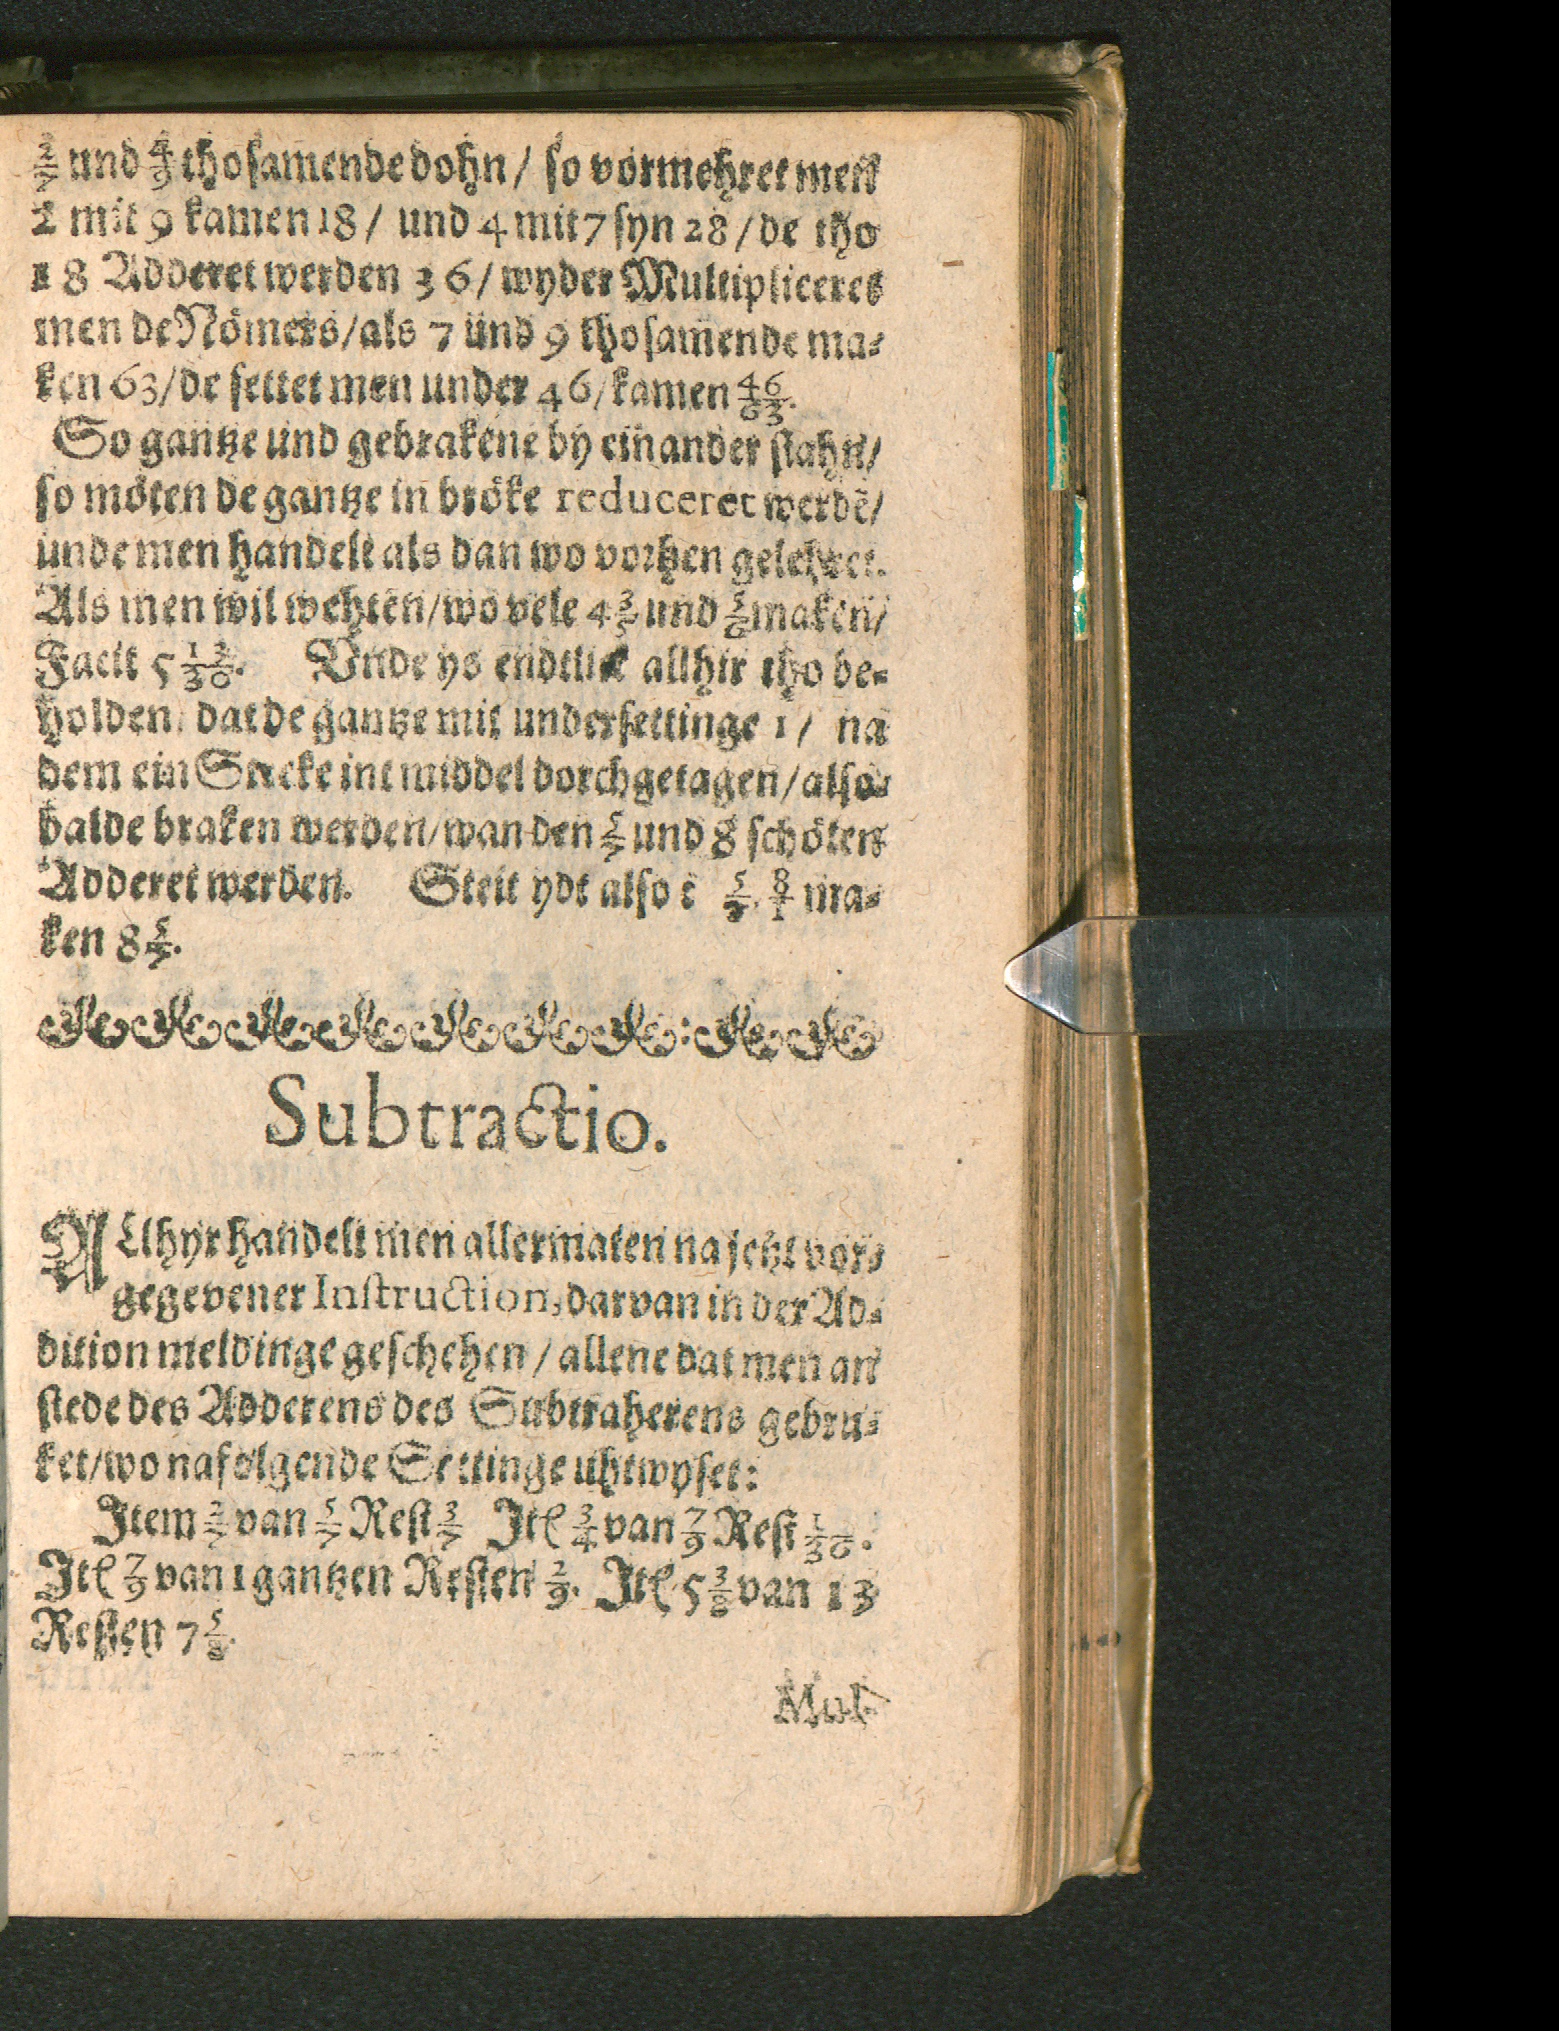 2/7 und 4/9 thosamende dohn / so vormehret men
2 mit 9 kamen 18 / und 4 mit 7 syn 28 / de tho
18 Adderet werden 36 / wyder Multipliceret
men de Nömers / als 7 und 9 thosamende ma⸗
ken 63 / de settet men under 46 / kamen 46/63.
So gantze und gebrakene by einander stahn /
so möten de gantze in bröke reduceret werdē /
unde men handelt als dan wo vorhen gelehret.
Als men wil wehten / wo vele 4 3/5 und 5/6 maken /
Facit 5 13/30. Vnde ys endtlick allhir tho be⸗
holden, dat de gantze mit undersettinge 1 / na
dem ein Strecke int middel dorchgetagen / also⸗
balde braken werden / wan den 5/7 und 8 schölen
Adderet werden. Steit ydt also: 5/7. 8/1 ma⸗
ken 8 5/7.
Subtractio.
ALlhyr handelt men allermaten na jetzt vor⸗
gegevener Instruction, darvan in der Ad⸗
dition meldinge geschehen / allene dat men an
stede des Adderens des Subtraherens gebru⸗
ket / wo nafolgende Settinge uhtwyset:
Item 2/7 van 5/7 Rest 3/7 Itē 3/4 van 7/9 Rest 1/36.
Itē 7/9 van 1 gantzen Resten 2/9. Itē 5 3/8 van 13
Resten 7 5/8.
Mul-